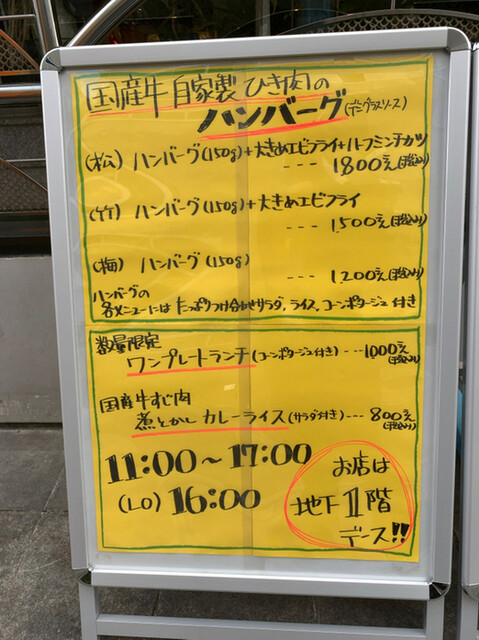 国産牛自家製ひき肉の
ハンバーグ(デミグラスソース)
(松) ハンバーグ(150g)+大きめエビフライ+ハーフミンチカツ
--- 1800え(税込み)
(竹) ハンバーグ(150g)+大きめエビフライ
--- 1500え(税込み)
(梅) ハンバーグ(150g)
--- 1,200え(税込み)
ハンバーグの
各メニューには たっぷりつけ合わせサラダ,ライス,コーンポタージュ 付き
数量限定
ワンプレートランチ(コーンポタージュ付き)---1000え(税込み)
国産牛すじ肉
煮とかし カレーライス(サラダ付き)---800え(税込み)
11:00~17:00
(LO) 16:00
お店は
地下1階
デース!!